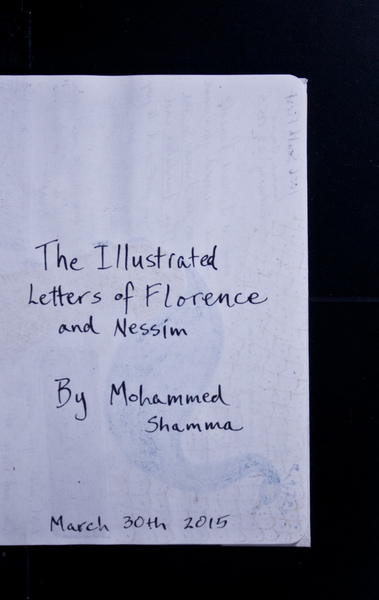 The Illustrated
Letters of Florence
and Nessim
By Mohammed
Shamma
March 30th 2015